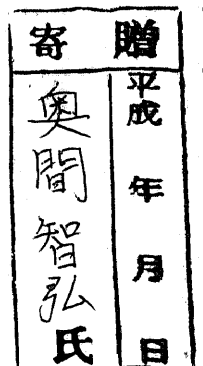 寄贈
平成 年 月 日
奥間智弘氏